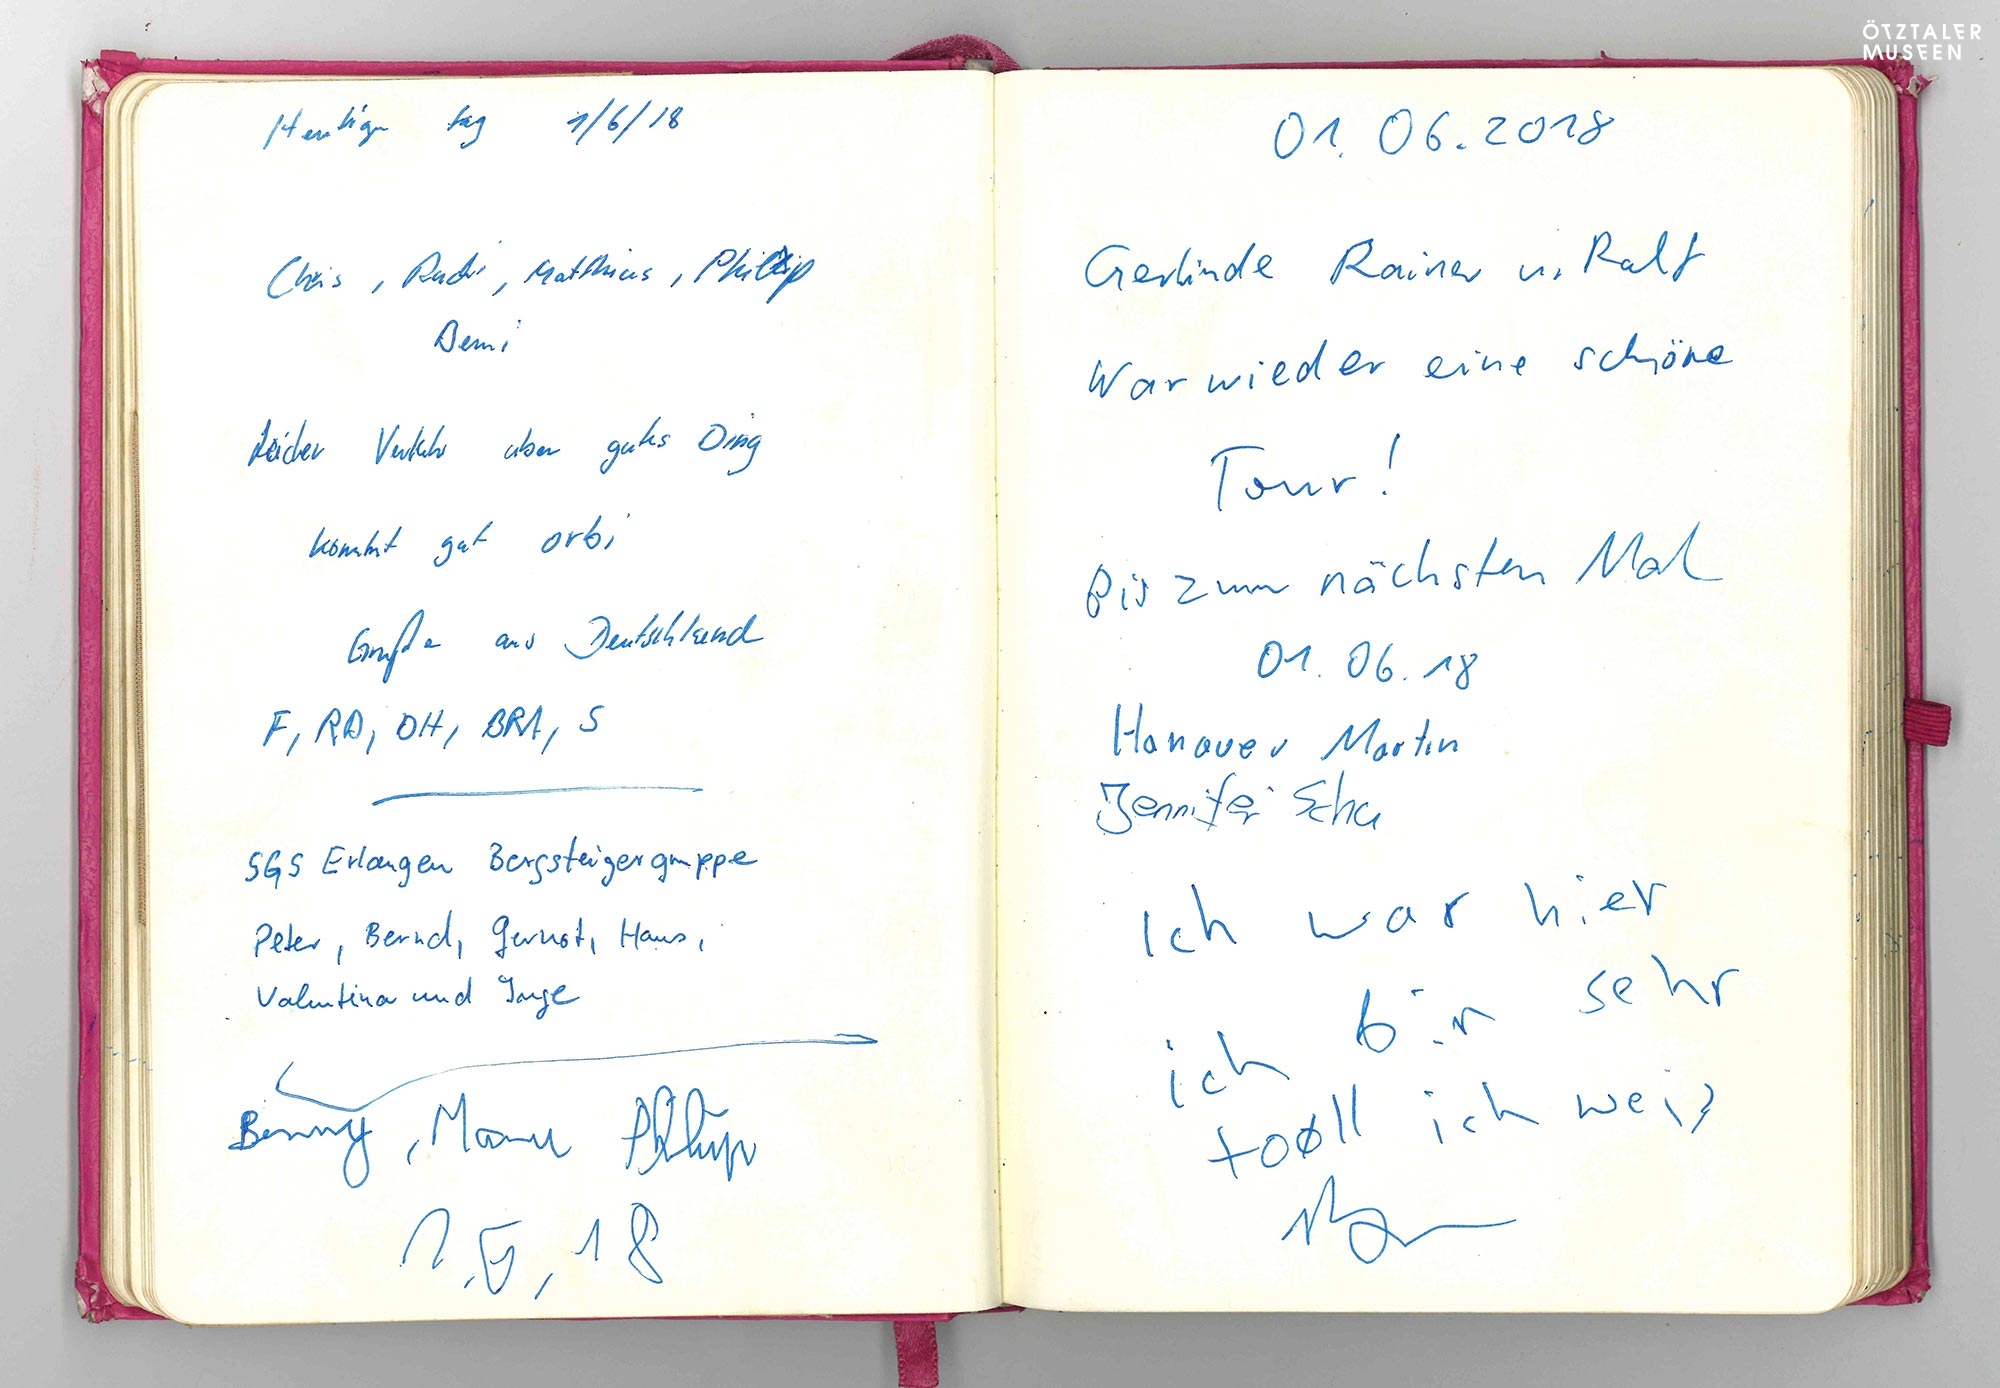 Heutign tag 1/6/18
Chris, Rudi, Matthias, Philip
Berni
Leider Verkehr aber gutes Ding
kommt gut orbi
Grüße aus Deutschland
F, RD, OH, BRA, S
SGS Erlangen Bergsteigergruppe
Peter, Bernd, Gernot, Hans,
Valentina und Inge
Benny, Manu Philip
1. 18
01.06.2018
Gerlinde Rainer u. Ralf
War wieder eine schöne
Tour!
Bis zum nächsten Mal
01.06.18
Hanauer Martin
Jennifer Scha
Ich war hier
ich bin sehr
tooll ich weiß
ÖTZTALER
MUSEEN